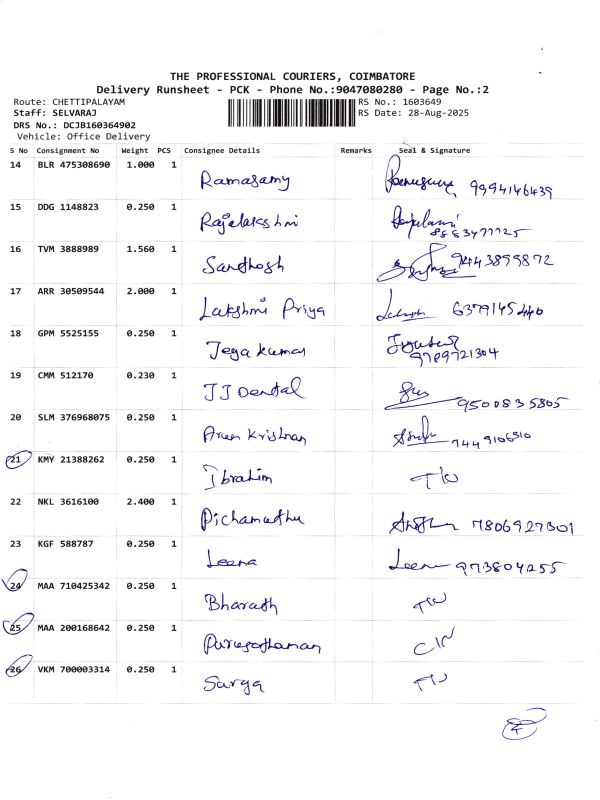 THE PROFESSIONAL COURIERS, COIMBATORE
Delivery Runsheet - PCK - Phone No.:9047080280 - Page No.:2
Route: CHETTIPALAYAM RS No.: 1603649
Staff: SELVARAJ RS Date: 28-Aug-2025
DRS No.: DCJB160364902
Vehicle: Office Delivery
S No Consignment No Weight PCS Consignee Details Remarks Seal & Signature
14 BLR 475308690 1.000 1 Ramasamy 9994146439
15 DDG 1148823 0.250 1 Rajalakshmi 8883477725
16 TVM 3888989 1.560 1 Santhosh 9443899872
17 ARR 30509544 2.000 1 Lakshmi Priya 6379145440
18 GPM 5525155 0.250 1 Jega kumar 9789721304
19 CMM 512170 0.230 1 JJ Dental 9500835805
20 SLM 376968075 0.250 1 Arun Krishnan 9449106510
21 KMY 21388262 0.250 1 Ibrahim
22 NKL 3616100 2.400 1 Pichamuthu 7806927301
23 KGF 588787 0.250 1 Leena Leena 973804255
24 MAA 710425342 0.250 1 Bharath
25 MAA 200168642 0.250 1 Purusothaman
26 VKM 700003314 0.250 1 Surya
4